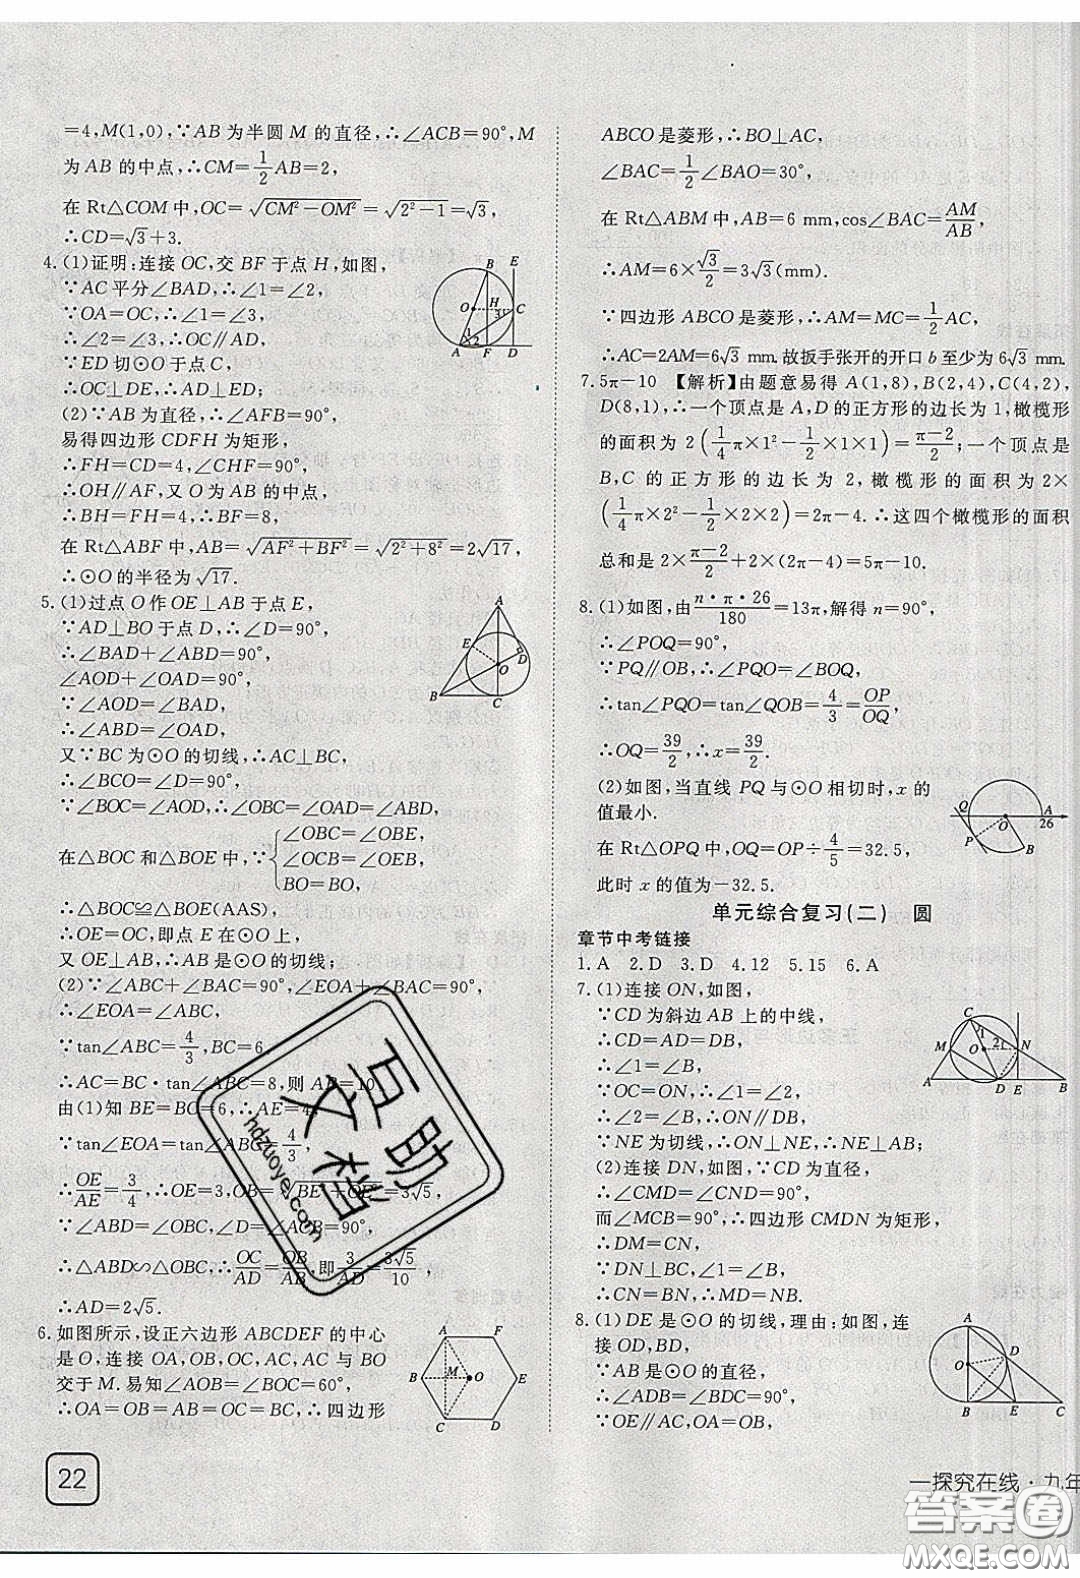 =4,M(1,0),∵AB 为半圆 M 的直径,∴∠ACB=90°,M
为 AB 的中点,∴CM=1/2AB=2,
在 Rt△COM 中,OC=√(CM²-OM²)=√(2²-1)=√3,
∴CD=√3+3.
4.(1)证明:连接 OC,交 BF 于点 H,如图,
∵AC 平分∠BAD,∴∠1=∠2,
∵OA=OC,∴∠1=∠3,
∴∠2=∠3,∴OC∥AD,
∵ED 切⊙O 于点 C,
∴OC⊥DE,∴AD⊥ED;
(2)∵AB 为直径,∴∠AFB=90°,
易得四边形 CDFH 为矩形,
∴FH=CD=4,∠CHF=90°,
∴OH∥AF,又 O 为 AB 的中点,
∴BH=FH=4,∴BF=8,
在 Rt△ABF 中,AB=√(AF²+BF²)=√(2²+8²)=2√17,
∴⊙O 的半径为√17.
5.(1)过点 O 作 OE⊥AB 于点 E,
∵AD⊥BO 于点 D,∴∠D=90°,
∴∠BAD+∠ABD=90°,
∠AOD+∠OAD=90°,
∵∠AOD=∠BAD,
∴∠ABD=∠OAD,
又∵BC 为⊙O 的切线,∴AC⊥BC,
∴∠BCO=∠D=90°,
∵∠BOC=∠AOD,∴∠OBC=∠OAD=∠ABD,
在△BOC 和△BOE 中,∵{∠OBC=∠OBE, ∠OCB=∠OEB, BO=BO,
∴△BOC≌△BOE(AAS),
∴OE=OC,即点 E 在⊙O 上,
又 OE⊥AB,∴AB 是⊙O 的切线;
(2)∵∠ABC+∠BAC=90°,∠EOA+∠BAC=90°,
∴∠EOA=∠ABC,
∵tan∠ABC=4/3,BC=6,
∴AC=BC·tan∠ABC=8,则 AB=10,
由(1)知 BE=BC=6,∴AE=4,
∵tan∠EOA=tan∠ABC=4/3,
∴OE/AE=3/4,∴OE=3,OB=√(BE²+OE²)=3√5,
∵∠ABD=∠OBC,∠D=∠ACB=90°,
∴△ABD∽△OBC,∴OC/AD=OB/AB,即3/AD=3√5/10,
∴AD=2√5.
6.如图所示,设正六边形 ABCDEF 的中心
是 O,连接 OA,OB,OC,AC,AC 与 BO
交于 M.易知∠AOB=∠BOC=60°,
∴OA=OB=AB=OC=BC,∴四边形
22
ABCO 是菱形,∴BO⊥AC,
∠BAC=1/2∠BAO=30°,
在 Rt△ABM 中,AB=6 mm,cos∠BAC=AM/AB,
∴AM=6×√3/2=3√3(mm).
∵四边形 ABCO 是菱形,∴AM=MC=1/2AC,
∴AC=2AM=6√3 mm.故扳手张开的开口 b 至少为 6√3 mm.
7.5π-10 【解析】由题意易得 A(1,8),B(2,4),C(4,2),
D(8,1),∴一个顶点是 A,D 的正方形的边长为 1,橄榄形
的面积为 2(1/4π×1²-1/2×1×1)=(π-2)/2;一个顶点是
B,C 的正方形的边长为 2,橄榄形的面积为 2×
(1/4π×2²-1/2×2×2)=2π-4.∴这四个橄榄形的面积
总和是 2×(π-2)/2+2×(2π-4)=5π-10.
8.(1)如图,由(n·π·26)/180=13π,解得 n=90°,
∴∠POQ=90°,
∵PQ∥OB,∴∠PQO=∠BOQ,
∴tan∠PQO=tan∠QOB=4/3=OP/OQ,
∴OQ=39/2,∴x=39/2;
(2)如图,当直线 PQ 与⊙O 相切时,x 的
值最小.
在 Rt△OPQ 中,OQ=OP÷4/5=32.5,
此时 x 的值为-32.5.
单元综合复习(二) 圆
章节中考链接
1.A 2.D 3.D 4.12 5.15 6.A
7.(1)连接 ON,如图,
∵CD 为斜边 AB 上的中线,
∴CD=AD=DB,
∴∠1=∠B,
∵OC=ON,∴∠1=∠2,
∴∠2=∠B,∴ON∥DB,
∵NE 为切线,∴ON⊥NE,∴NE⊥AB;
(2)连接 DN,如图,∵CD 为直径,
∴∠CMD=∠CND=90°,
而∠MCB=90°,∴四边形 CMDN 为矩形,
∴DM=CN,
∵DN⊥BC,∠1=∠B,
∴CN=BN,∴MD=NB.
8.(1)DE 是⊙O 的切线,理由:如图,连
接 OD,BD,
∵AB 是⊙O 的直径,
∴∠ADB=∠BDC=90°,
∵OE∥AC,OA=OB,
一探究在线·九年
互助文档
hdzuoye.com
答案圈
MXQE.COM